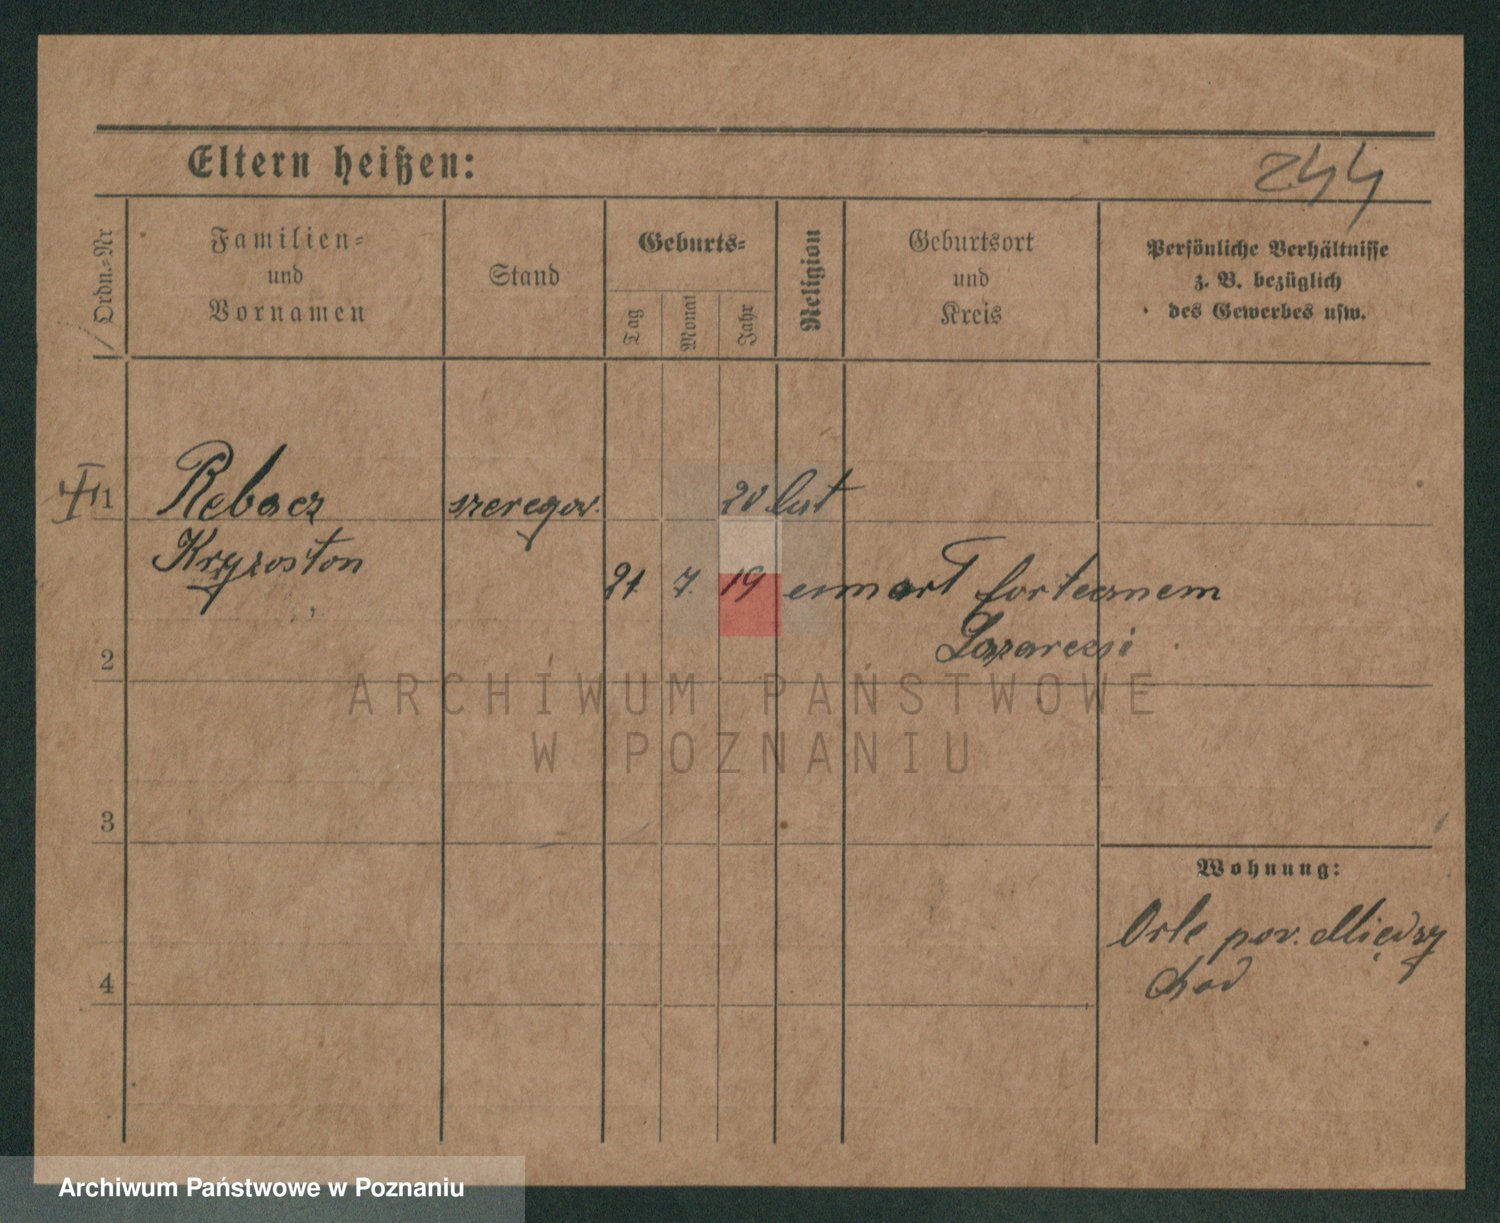 Eltern heißen:
244
Ordn.-Nr
Familien-
und
Vornamen
Stand
Geburts-
Tag
Monat
Jahr
Religion
Geburtsort
und
Kreis
Persönliche Verhältnisse
z. B. bezüglich
des Gewerbes usw.
1 Rebacz szeregow. 20 lat
Kryzoston
21 7. 19
2
3
4
Wohnung:
Orle pow. Między
chod
ARCHIWUM PAŃSTWOWE
W POZNANIU
Archiwum Państwowe w Poznaniu